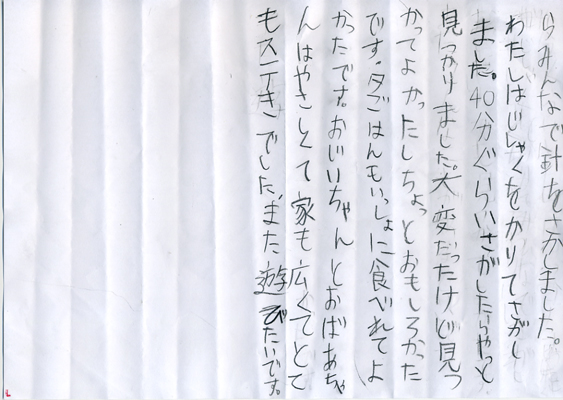 らみんなで針をさがしました。
わたしはじしゃくをかりてさがし
ました。40分ぐらいさがしたらやっと
見つかりました。大変だったけど見つ
かってよかったしちょっとおもしろかった
です。夕ごはんもいっしょに食べれてよ
かったです。おじいちゃんとおばあちゃ
んはやさしくて家も広くてとて
もステきでした。また遊びたいです。